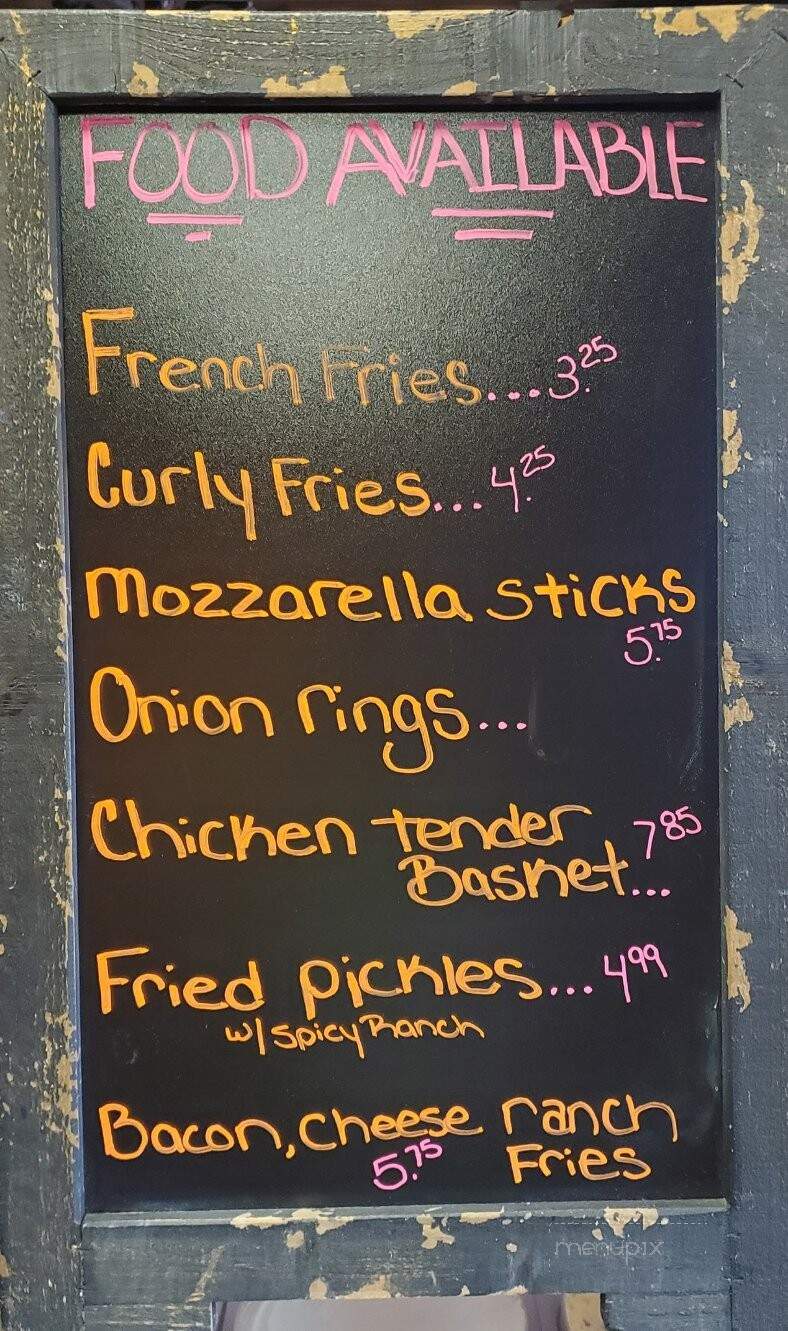 FOOD AVAILABLE
French Fries...3.25
Curly Fries...4.25
Mozzarella sticks
5.75
Onion rings...
Chicken tender 7.85
Basket...
Fried pickles...4.99
w/ spicy Ranch
Bacon, cheese ranch
5.75 Fries
menupix